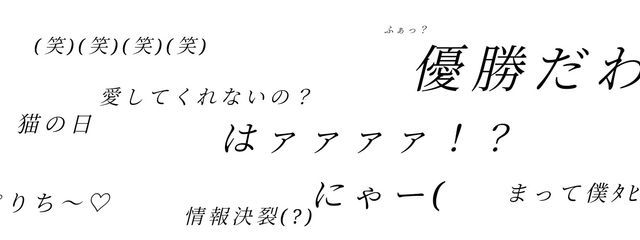 ふぁっ？
(笑)(笑)(笑)(笑)
優勝だわ
愛してくれないの？
猫の日
はァァァァ！？
にゃー(
まって僕ﾀﾋ
りち～♡
情報決裂(?)